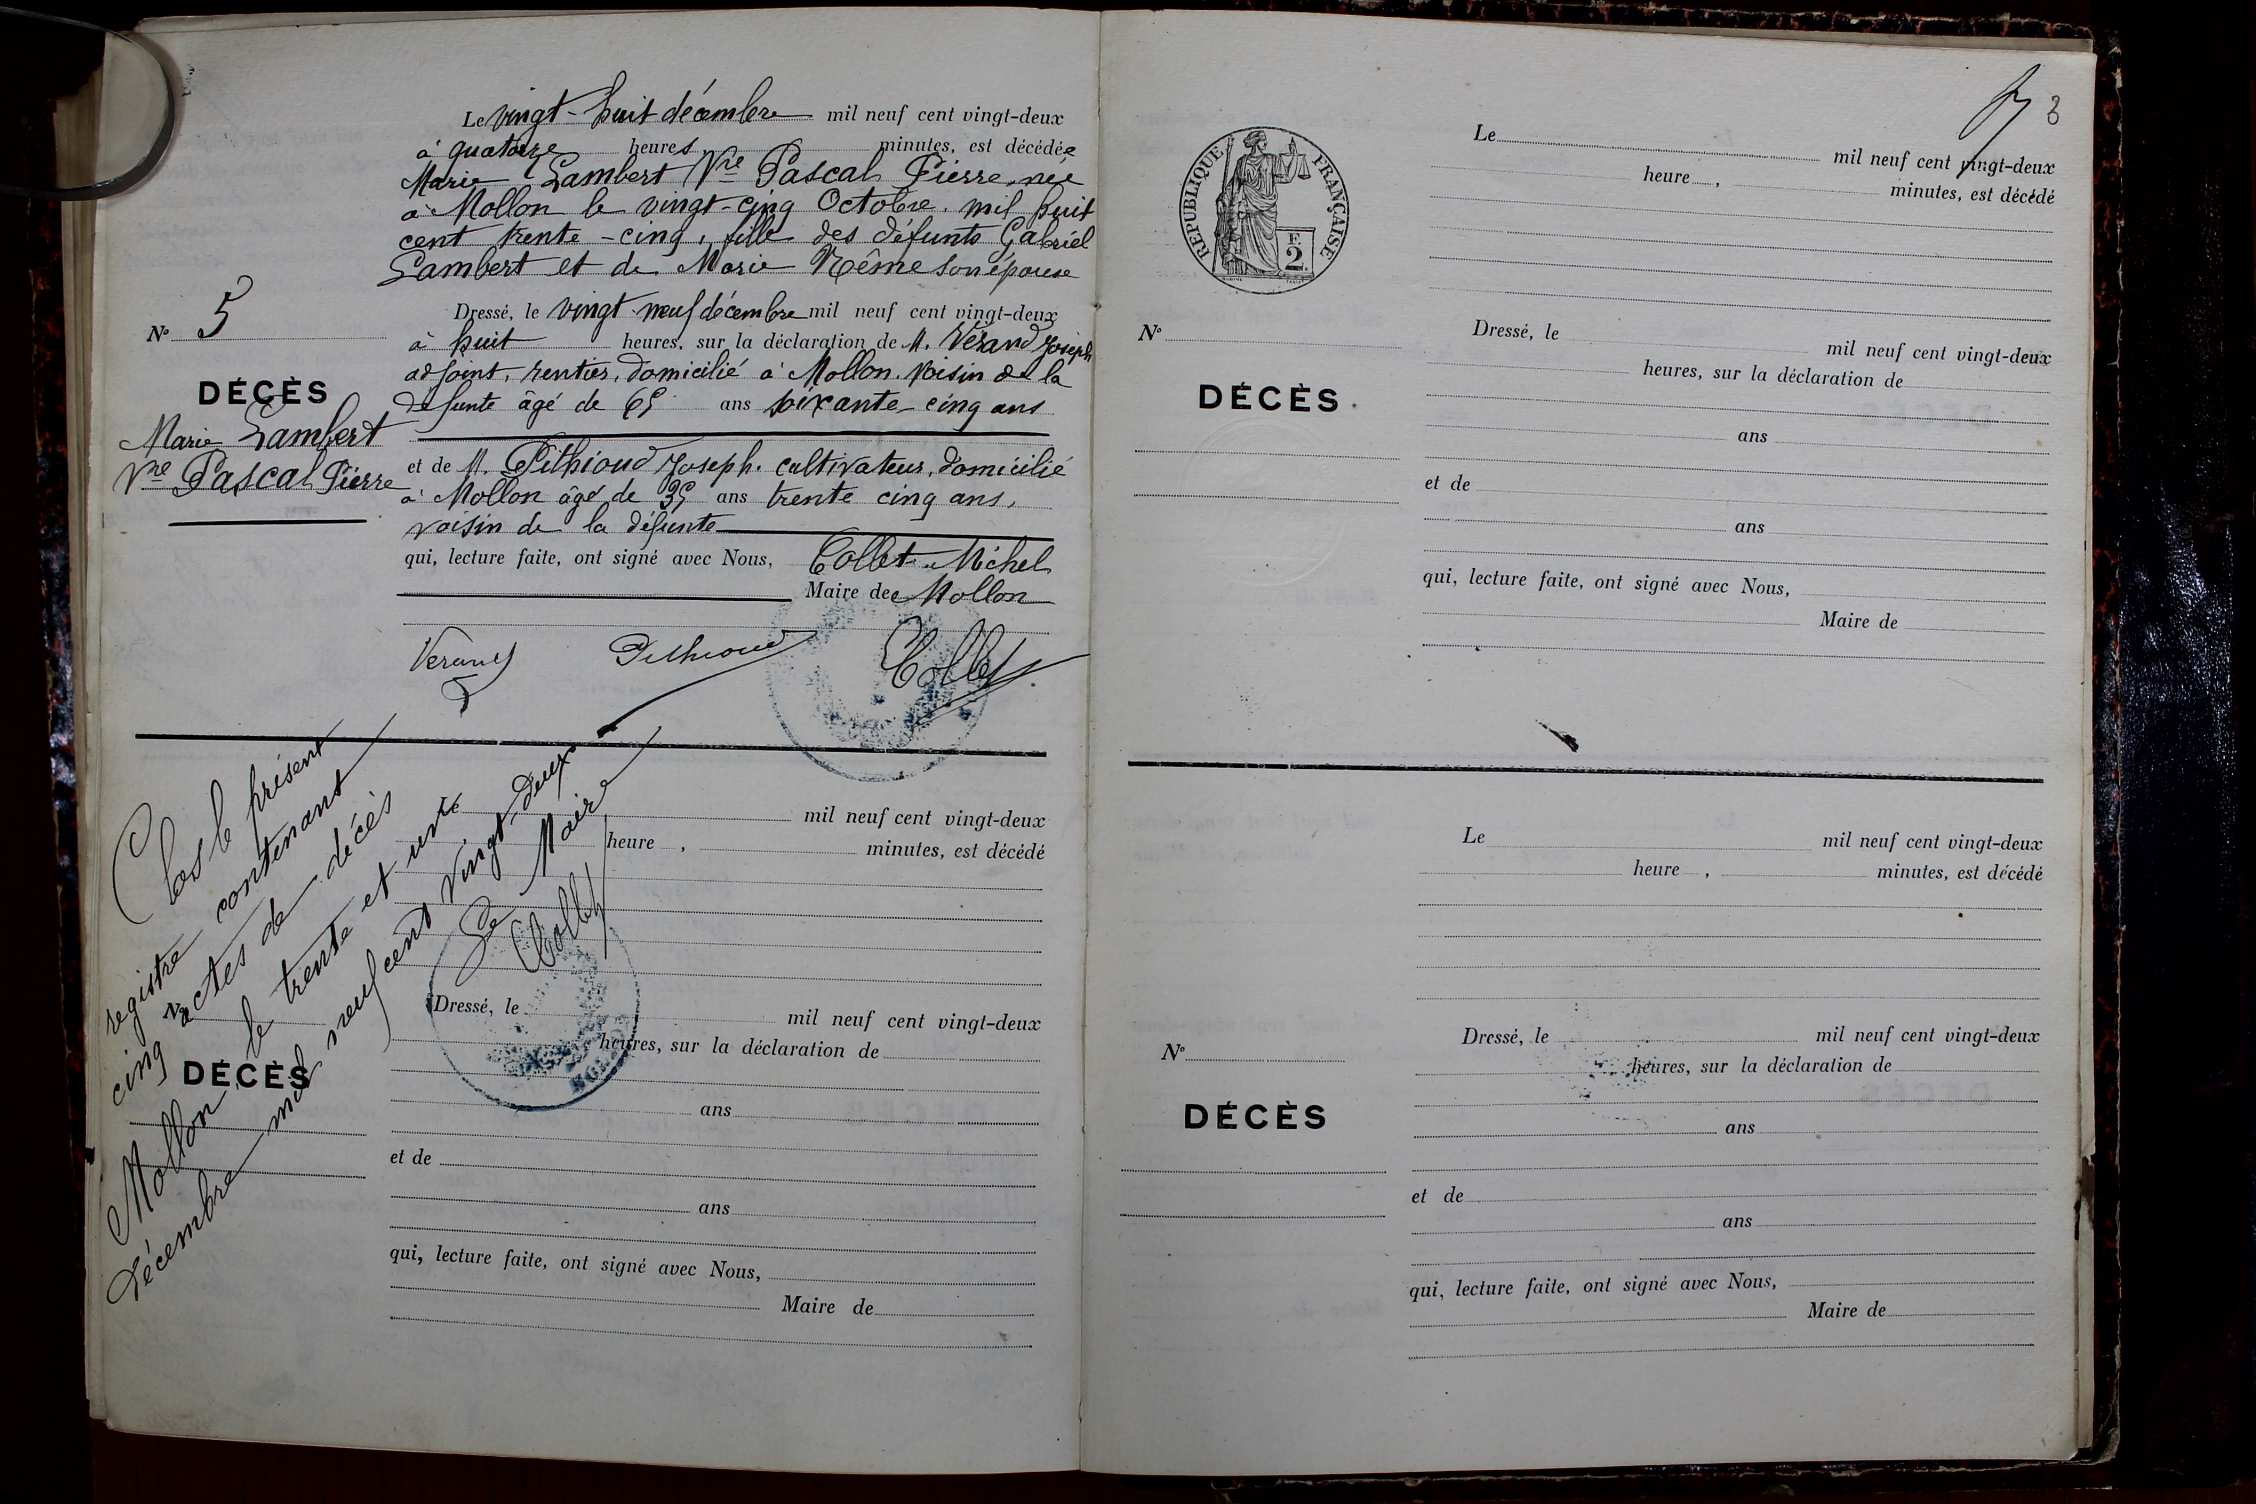 Le vingt-huit décembre mil neuf cent vingt-deux
à quatorze heures, minutes, est décédée
Marie Lambert Vve Pascal Pierre, née
à Mollon le vingt-cinq Octobre mil huit
cent trente-cinq, fille des défunts Gabriel
Lambert et de Marie son épouse
Dressé, le vingt neuf décembre mil neuf cent vingt-deux
à huit heures, sur la déclaration de M. Vérand Joseph
adjoint, rentier, domicilié à Mollon. Voisin de la
défunte âgé de 65 ans soixante-cinq ans
et de M. Pithioud Joseph. cultivateur, domicilié
à Mollon âgé de 35 ans trente cinq ans,
voisin de la défunte
qui, lecture faite, ont signé avec Nous, Collet Michel
Maire de Mollon
Verand Pithioud Collet
No 5
DÉCÈS
Marie Lambert
Vve Pascal Pierre
Clos le présent
registre contenant
cinq actes de décès
Mollon, le trente et un
décembre mil neuf cent vingt deux
Le Maire
Collet
Le mil neuf cent vingt-deux
heure , minutes, est décédé
Dressé, le mil neuf cent vingt-deux
heures, sur la déclaration de
ans
et de
ans
qui, lecture faite, ont signé avec Nous,
Maire de
No
DÉCÈS
3
RÉPUBLIQUE FRANÇAISE
F.
2
Le mil neuf cent vingt-deux
heure , minutes, est décédé
Dressé, le mil neuf cent vingt-deux
heures, sur la déclaration de
ans
et de
ans
qui, lecture faite, ont signé avec Nous,
Maire de
No
DÉCÈS
Le mil neuf cent vingt-deux
heure , minutes, est décédé
Dressé, le mil neuf cent vingt-deux
heures, sur la déclaration de
ans
et de
ans
qui, lecture faite, ont signé avec Nous,
Maire de
No
DÉCÈS